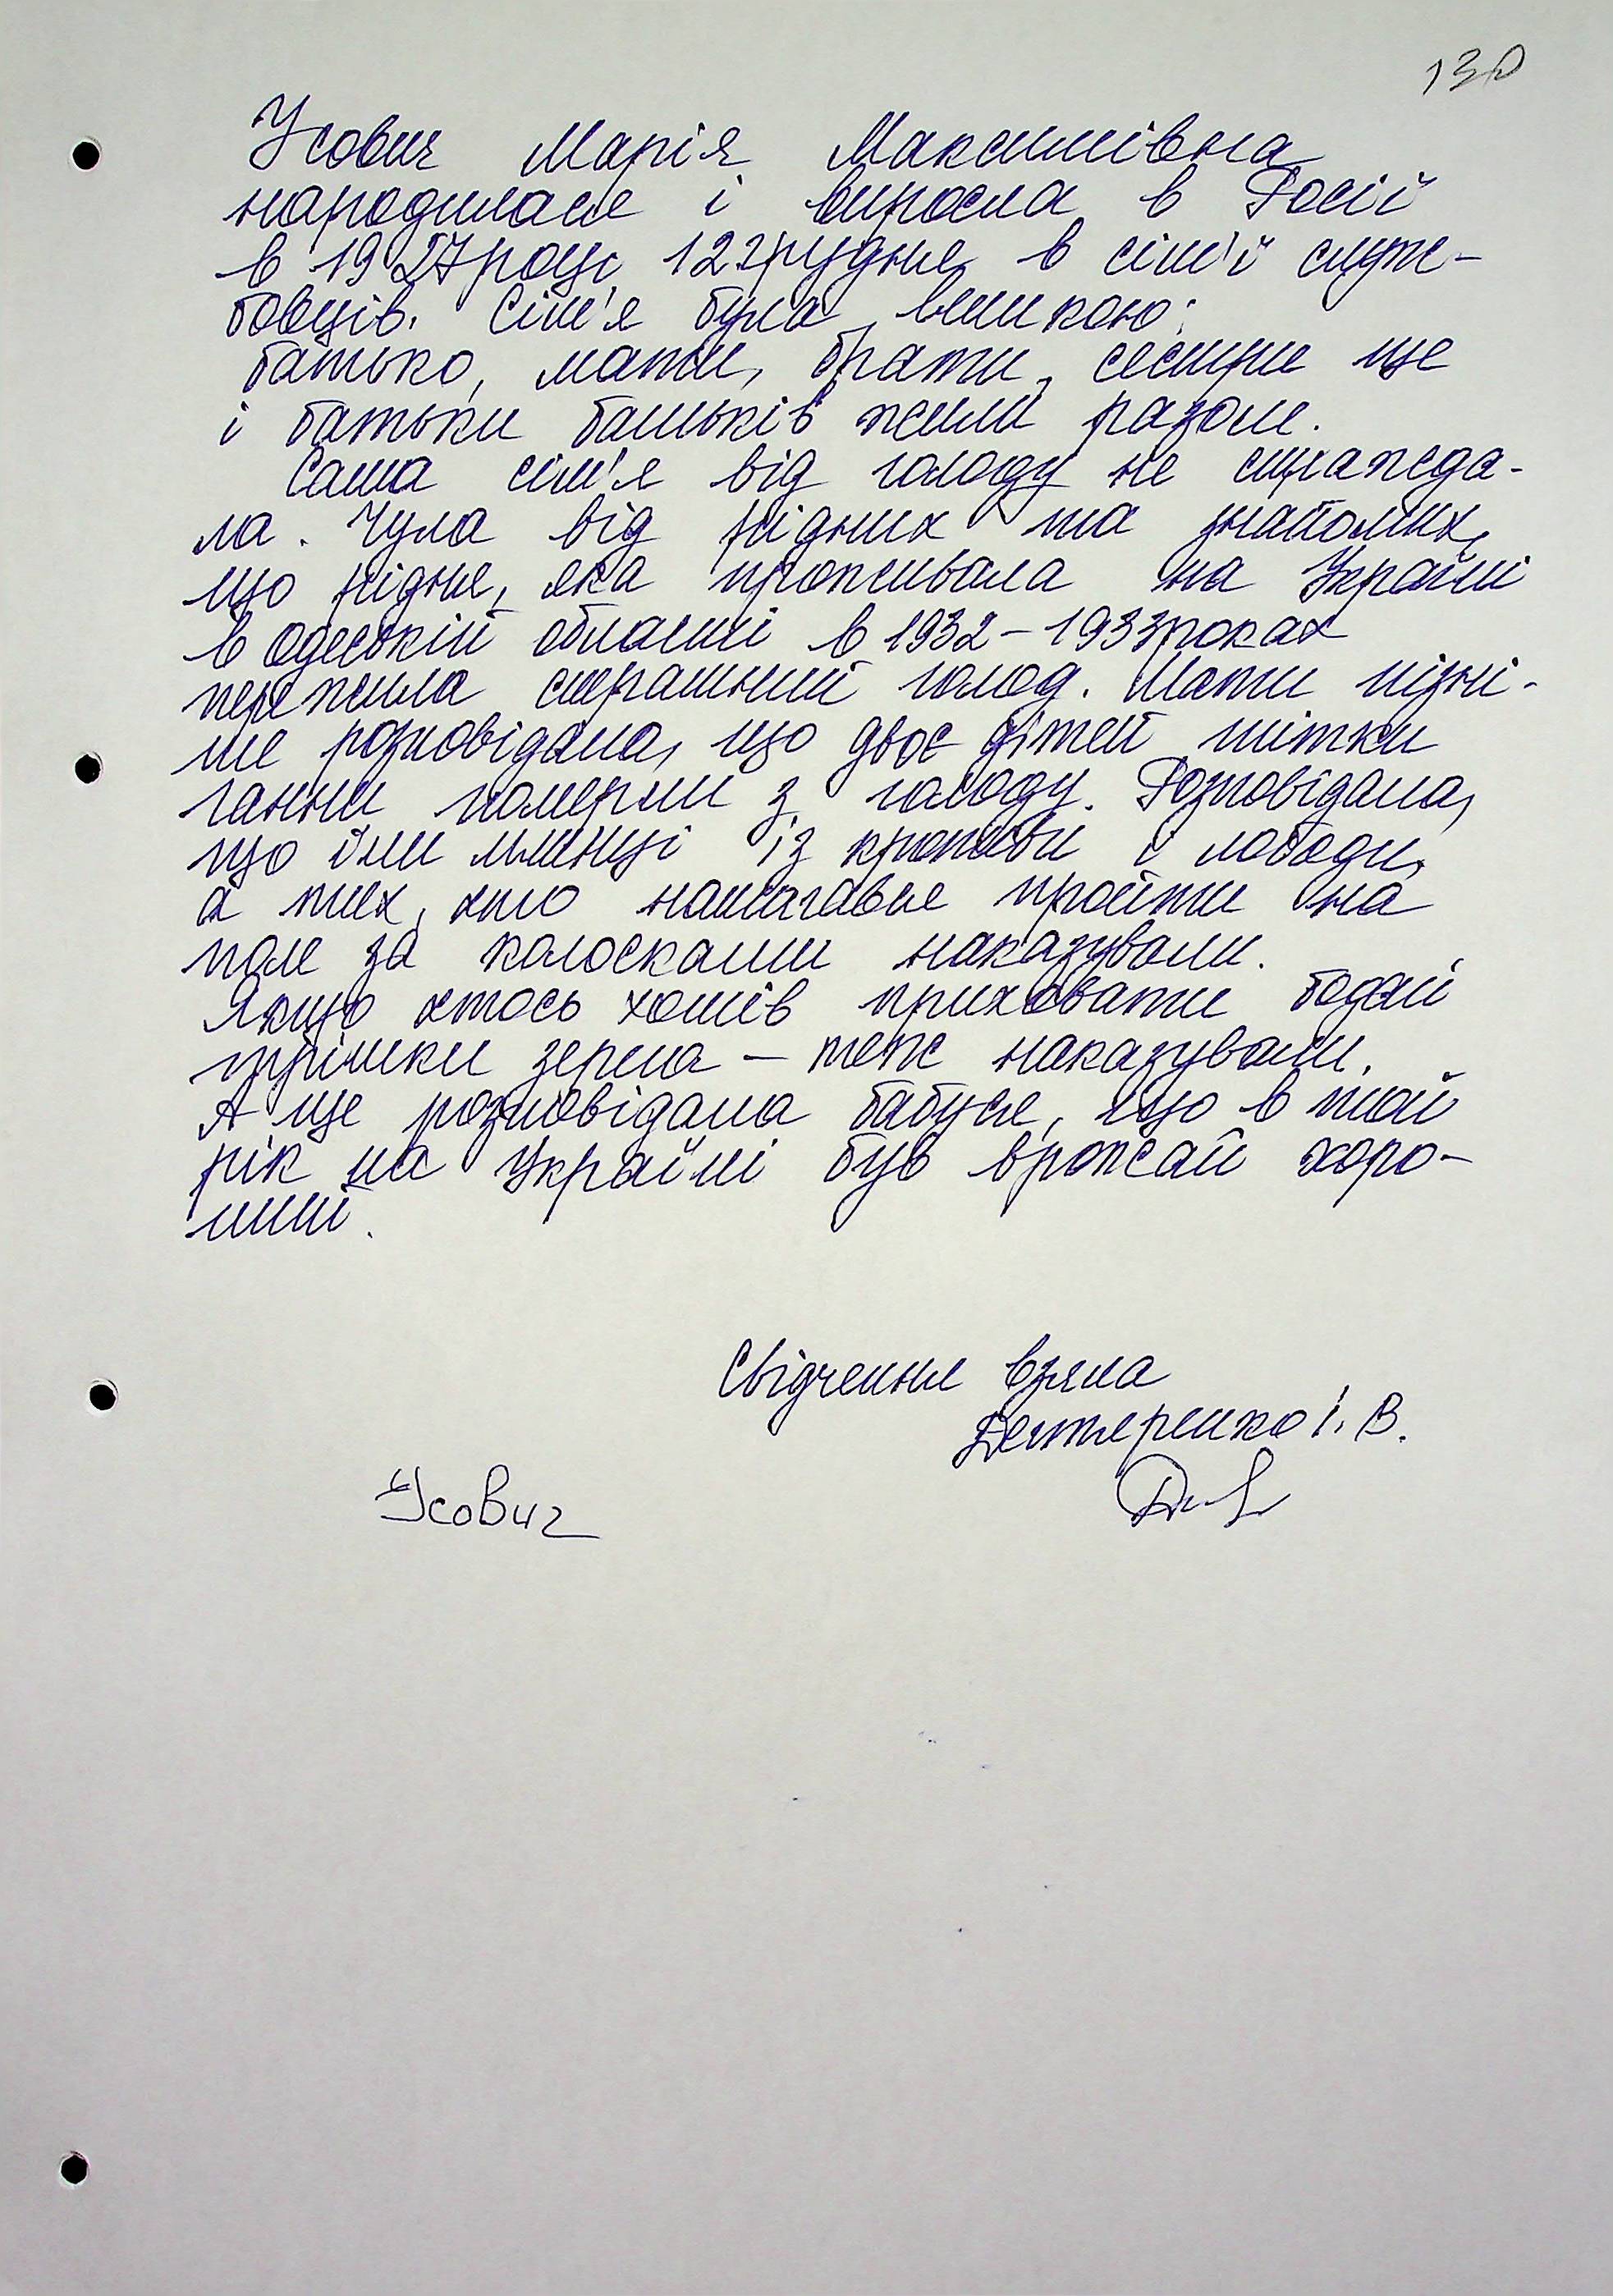 130
Усович Марія Максимівна
народилася і виросла в Росії
в 1927 році, 12 грудня, в сім'ї служ-
бовців. Сім'я була великою:
батько, мати, брати, сестри ще
і батьки батьків жили разом.
Сама сім'я від голоду не стражда-
ла. Чула від рідних та знайомих,
що рідня, яка проживала на Україні
в Одеській області в 1932-1933 роках
пережила страшний голод. Мати пізні-
ше розповідала, що двоє дітей тітки
Ганни померли з голоду. Розповідала,
що їли млинці із кропиви і лободи,
а тих, хто намагався пройти на
поле за колосками наказували.
Якщо хтось хотів приховати бодай
трішки зерна — теж наказували.
А ще розповідала бабуся, що в той
рік на Україні був врожай хоро-
ший.
Свідчення взяла
Дегтяренко І. В.
Усович